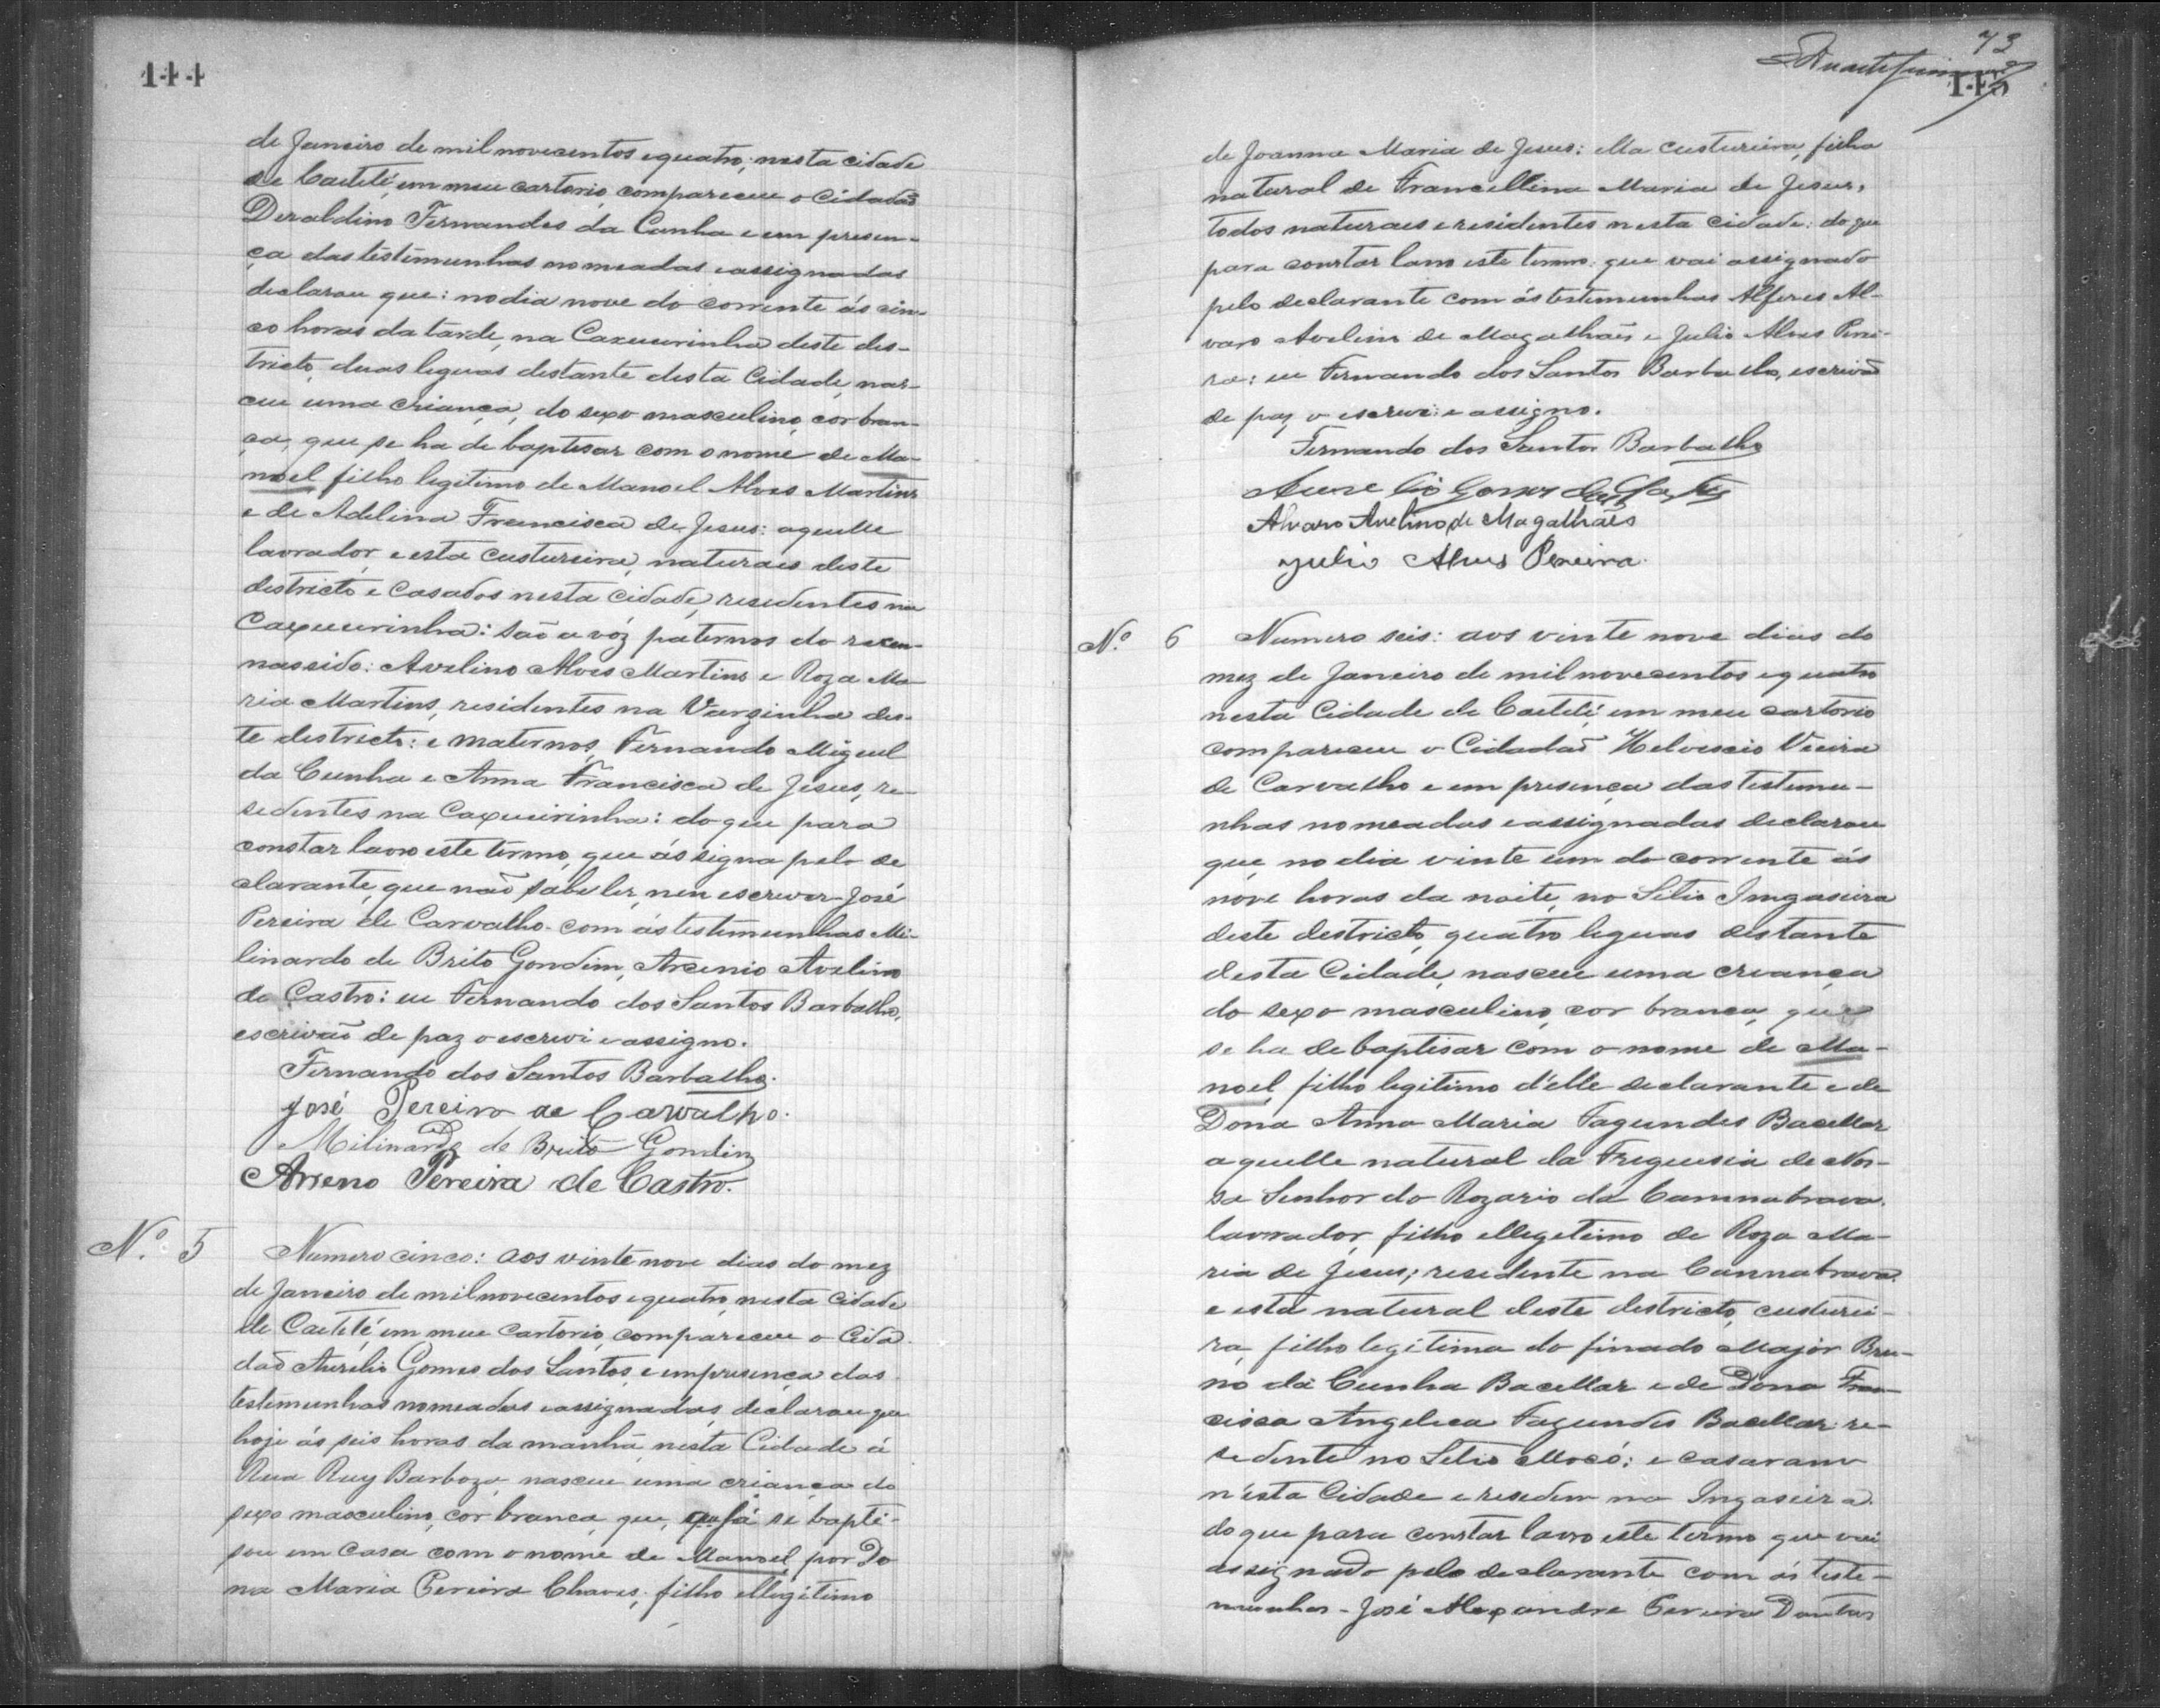 144
de Janeiro de mil novecentos e quatro, nesta cidade
de Caeteté, em meu cartorio, compareceu o Cidadão
Deraldino Fernandes da Cunha e em presen-
ça das testemunhas nomeadas e assignadas
declarou que: no dia nove do corrente ás cin-
co horas da tarde, na Caxueirinha deste des-
tricto, duas leguas destante desta Cidade, nas-
ceu uma criança, do sexo masculino, cor bran-
ca, que se ha de baptisar com o nome de Ma-
noel filho legitimo de Manoel Alves Martins
e de Adelina Francisca de Jesus: aquelle
lavrador, e esta custureira, naturaes deste
destricto e casados nesta Cidade, resedentes na
Caxueirinha: são avóz paternos do recem-
nassido: Avelino Alves Martins e Roza Ma-
ria Martins, residentes na Varginha des-
te destricto: e maternos, Fernando Miguel
da Cunha e Anna Francisca de Jesus, re-
sedentes na Caxueirinha: do que para
constar lavro este termo, que ássigna pelo de
clarante, que não sabe ler, nem escrever José
Pereira de Carvalho com ás testemunhas Mi-
linardo de Brito Gondim, Arcenio Avelino
de Castro: eu Fernando dos Santos Barbalho,
escrivão de paz o escrevi e assigno.
Fernando dos Santos Barbalho.
José Pereira de Carvalho.
Milinardo de Brito Gondim
Arseno Pereira de Castro.
Nº 5 Numero cinco: aos vinte nove dias do mez
de Janeiro de mil novecentos e quatro, nesta cidade
de Caeteté, em meu Cartorio, compareceu o Cida
dão Aurelio Gomes dos Santos, e em presença das
testemunhas nomeadas e assignadas, declarou que
hoje ás seis horas da manhã, nesta Cidade á
Rua Ruy Barboza, nasceu uma criança do
sexo masculino, cor branca, que, já se bapti-
sou em casa com o nome de Manoel, por Do
na Maria Pereira Chaves, filho ellegitimo
73
145
de Joanna Maria de Jesus: ella custureira, filha
natural de Francellina Maria de Jesus,
todos naturaes e residentes nesta cidade: do que
para constar lavro este termo: que vai assignado
pelo declarante com ás testemunhas Alferes Al-
varo Avelino de Magalhães e Julio Alves Perei-
ra: eu Fernando dos Santos Barbalho, escrivão
de paz o escrevi: e assigno.
Fernando dos Santos Barbalho
Aurelio Gomes dos Santos
Alvaro Avelino de Magalhães
Julio Alves Pereira.
Nº 6 Numero seis: aos vinte nove dias do
mez de Janeiro de mil novecentos e quatro
nesta Cidade de Caeteté, em meu cartorio
compareceu o Cidadão Helvescio Vieira
de Carvalho e em presença das testemu-
nhas nomeadas e assignadas declarou
que, no dia vinte um do corrente ás
nove horas da noite, no Sitio Ingaseira
deste destricto, quatro leguas destante
desta Cidade, nasceu uma creança
do sexo masculino, cor branca, que
se ha de baptisar com o nome de Ma-
noel, filho legitimo d'elle declarante e de
Dona Anna Maria Fagundes Bacellar
aquelle natural da Freguesia de Nos-
sa Senhor do Rozario da Cannabrava.
lavrador, filho ellegetimo de Roza Ma-
ria de Jesus; resedente na Cannabrava
e esta natural deste destricto, custurei-
ra, filho legitima do finado Major Bru-
no da Cunha Bacellar e de Dona Fran-
cisca Angelica Fagundes Bacellar: re-
sedente no Sitio Mocó: e casaram
n'esta Cidade e resedem na Ingaseira.
do que para constar lavro este termo que vai
assignado pelo declarante com ás teste-
munhas - José Alexandre Pereira Dantas